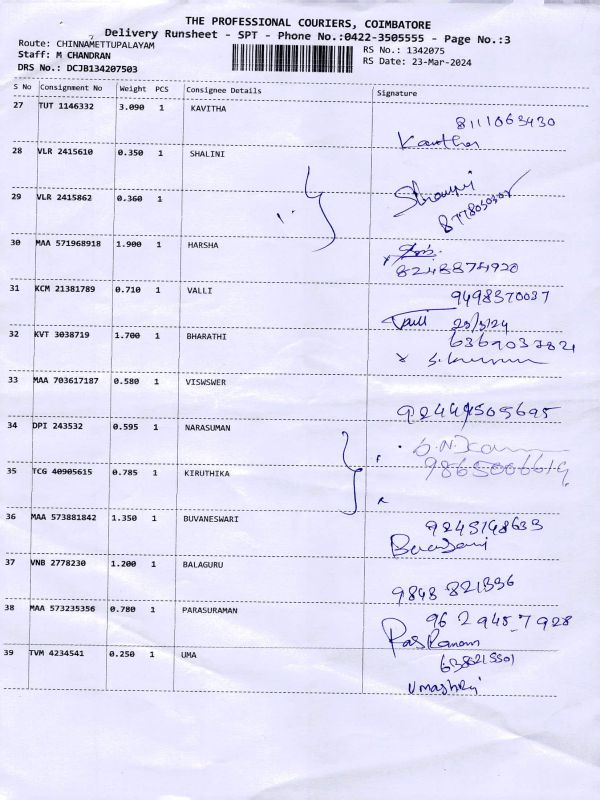 THE PROFESSIONAL COURIERS, COIMBATORE
Delivery Runsheet - SPT - Phone No.:0422-3505555 - Page No.:3
Route: CHINNAMETTUPALAYAM
RS No.: 1342075
Staff: M CHANDRAN
RS Date: 23-Mar-2024
DRS No.: DCJB134207503
S No Consignment No Weight PCS Consignee Details Signature
27 TUT 1146332 3.090 1 KAVITHA
8111063430
Kavitha
28 VLR 2415610 0.350 1 SHALINI
29 VLR 2415862 0.360 1
30 MAA 571968918 1.900 1 HARSHA
31 KCM 21381789 0.710 1 VALLI
9498370037
Valli
32 KVT 3038719 1.700 1 BHARATHI
33 MAA 703617187 0.580 1 VISWSWER
34 DPI 243532 0.595 1 NARASUMAN
35 TCG 40905615 0.785 1 KIRUTHIKA
36 MAA 573881842 1.350 1 BUVANESWARI
37 VNB 2778230 1.200 1 BALAGURU
9848 821396
38 MAA 573235356 0.780 1 PARASURAMAN
96 29457928
39 TVM 4234541 0.250 1 UMA